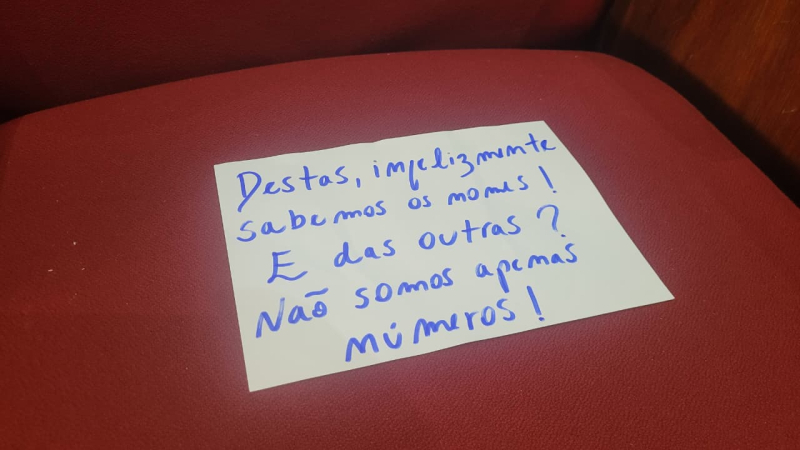 Destas, infelizmente
sabemos os nomes!
E das outras?
Não somos apenas
números!